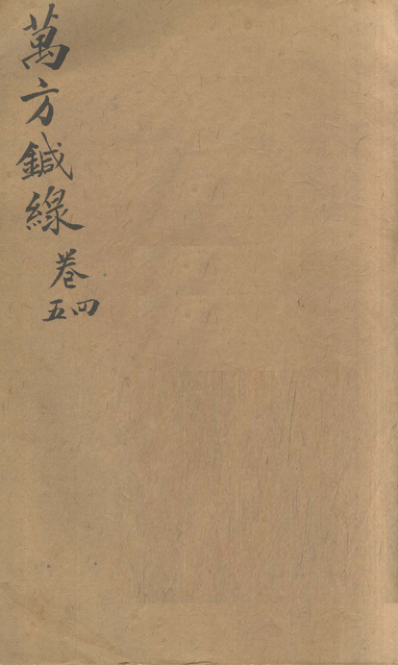 萬方鍼線
卷
四五